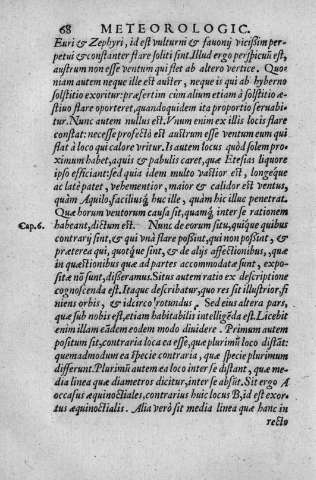 68 METEOROLOGIC.
Euri & Zephyri, id est vulturni & fauonij vicißim per-
petui & constanter flare soliti sint. Illud ergo perspicuũ est,
austrum non esse ventum qui flet ab altero vertice. Quo-
niam autem neque ille est auster, neque is qui ab hyberno
solstitio exoritur: præsertim cùm alium etiam à solstitio æ-
stiuo flare oporteret, quandoquidem ita proportio seruabi-
tur. Nunc autem nullus est. Vnum enim ex illis locis flare
constat: necesse profectò est austrum esse ventum eum qui
flat à loco qui calore vritur. Is autem locus quòd solem pro-
ximum habet, aquis & pabulis caret, quæ Etesias liquore
ipso efficiant: sed quia idem multo vastior est, longéque
ac latè patet, vehementior, maior & calidor est ventus,
quàm Aquilo, faciliusq́ huc ille, quàm hic illuc penetrat.
Quæ horum ventorum causa sit, quamq́ inter se rationem
Cap. 6. habeant, dictum est. Nunc de eorum situ, quíque quibus
contrarij sint, & qui vnà flare poßint, qui non poßint, &
præterea qui, quotq́ue sint, & de alijs affectionibus, quæ
in quæstionibus quæ ad partes accommodatæ sunt, expo-
sitæ nõ sunt, disseramus. Situs autem ratio ex descriptione
cognoscenda est. Itaque describatur, quo res sit illustrior, fi
niens orbis, & idcirco rotundus. Sed eius altera pars,
quæ sub nobis est, etiam habitabilis intelligẽda est. Licebit
enim illam eãdem eodem modo diuidere. Primum autem
positum sit, contraria loca ea esse, quæ plurimũ loco distãt:
quemadmodum ea specie contraria, quæ specie plurimum
differunt. Plurimũ autem ea loco inter se distant, quæ me-
dia linea quæ diametros dicitur, inter se absũt. Sit ergo A
occasus æquinoctiales, contrarius huic locus B, id est exor-
tus æquinoctialis. Alia verò sit media linea quæ hanc in
recto